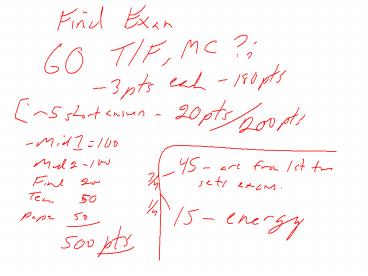 Final Exam
60 T/F, MC ?s
- 3 pts each - 180 pts
[~5 short answer - 20 pts/200 pts
- Mid 1 = 100
Mid 2 - 100
Final 200
Team 50
Paper 50
500 pts
3/4 - 45 - are from 1st two
sets exams.
1/4 15 - energy